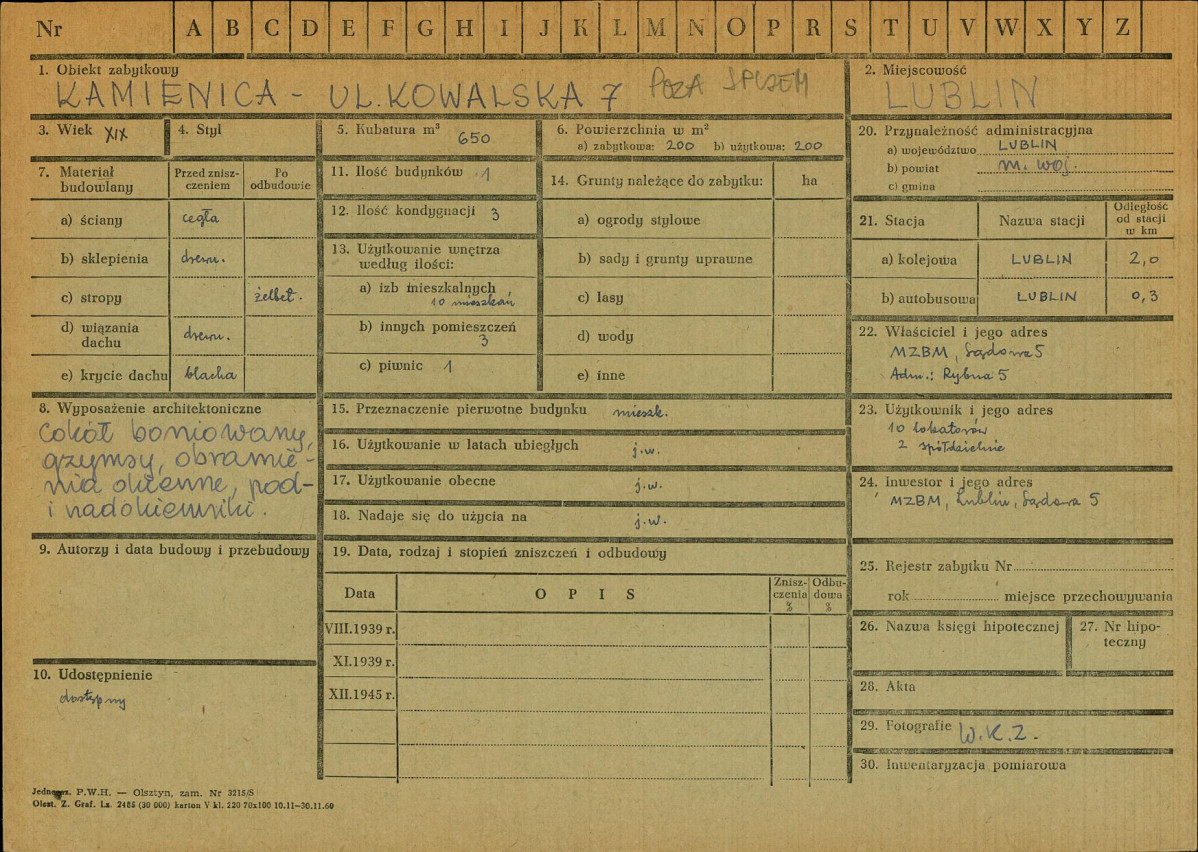 Nr A B C D E F G H I J K L M N O P R S T U V W X Y Z
1. Obiekt zabytkowy
KAMIENICA - UL. KOWALSKA 7 POZA SPISEM
2. Miejscowość
LUBLIN
3. Wiek XIX
4. Styl
5. Kubatura m³ 650
6. Powierzchnia w m²
a) zabytkowa: 200 b) użytkowa: 200
20. Przynależność administracyjna
a) województwo LUBLIN
b) powiat m. woj.
c) gmina
7. Materiał budowlany
Przed zniszczeniem
Po odbudowie
a) ściany cegła
b) sklepienia drewn.
c) stropy żelbet.
d) wiązania dachu drewn.
e) krycie dachu blacha
11. Ilość budynków 1
12. Ilość kondygnacji 3
13. Użytkowanie wnętrza
według ilości:
a) izb mieszkalnych
10 mieszkań
b) innych pomieszczeń
3
c) piwnic 1
14. Grunty należące do zabytku: ha
a) ogrody stylowe
b) sady i grunty uprawne
c) lasy
d) wody
e) inne
21. Stacja Nazwa stacji
Odległość
od stacji
w km
a) kolejowa LUBLIN 2,0
b) autobusowa LUBLIN 0,3
22. Właściciel i jego adres
MZBM, Sądowa 5
Adm.: Rybna 5
8. Wyposażenie architektoniczne
cokół boniowany,
gzymsy, obramie-
nia okienne, pod-
i nadokienniki.
15. Przeznaczenie pierwotne budynku mieszk.
16. Użytkowanie w latach ubiegłych j.w.
17. Użytkowanie obecne j.w.
18. Nadaje się do użycia na j.w.
23. Użytkownik i jego adres
10 lokatorów
2 spółdzielnie
24. Inwestor i jego adres
MZBM, Lublin, Sądowa 5
9. Autorzy i data budowy i przebudowy
19. Data, rodzaj i stopień zniszczeń i odbudowy
Data OPIS
Znisz-
czenia
%
Odbu-
dowa
%
VIII.1939 r.
XI.1939 r.
XII.1945 r.
25. Rejestr zabytku Nr
rok miejsce przechowywania
26. Nazwa księgi hipotecznej
27. Nr hipo-
teczny
10. Udostępnienie
dostępny
28. Akta
29. Fotografie W.K.Z.
30. Inwentaryzacja pomiarowa
P.W.H. — Olsztyn, zam. Nr 3215/S
Olszt. Z. Graf. Lz. 2485 (30 000) karton V kl. 220 70x100 10.11—30.11.60